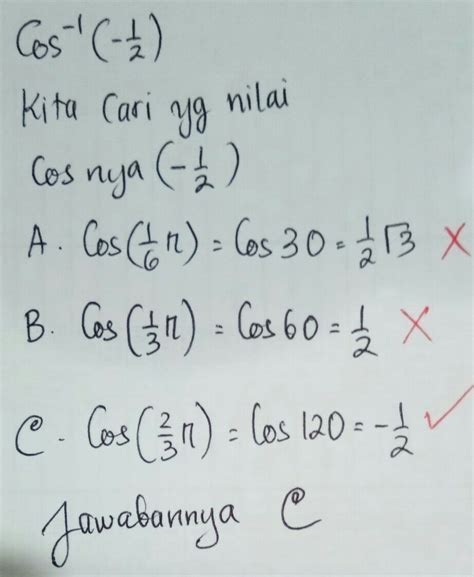 Cos⁻¹(-1/2)
Kita Cari yg nilai
Cos nya (-1/2)
A. Cos(1/6 π) = Cos 30 = 1/2 √3 ✗
B. Cos(1/3 π) = Cos 60 = 1/2 ✗
C. Cos(2/3 π) = Cos 120 = -1/2 ✓
Jawabannya C